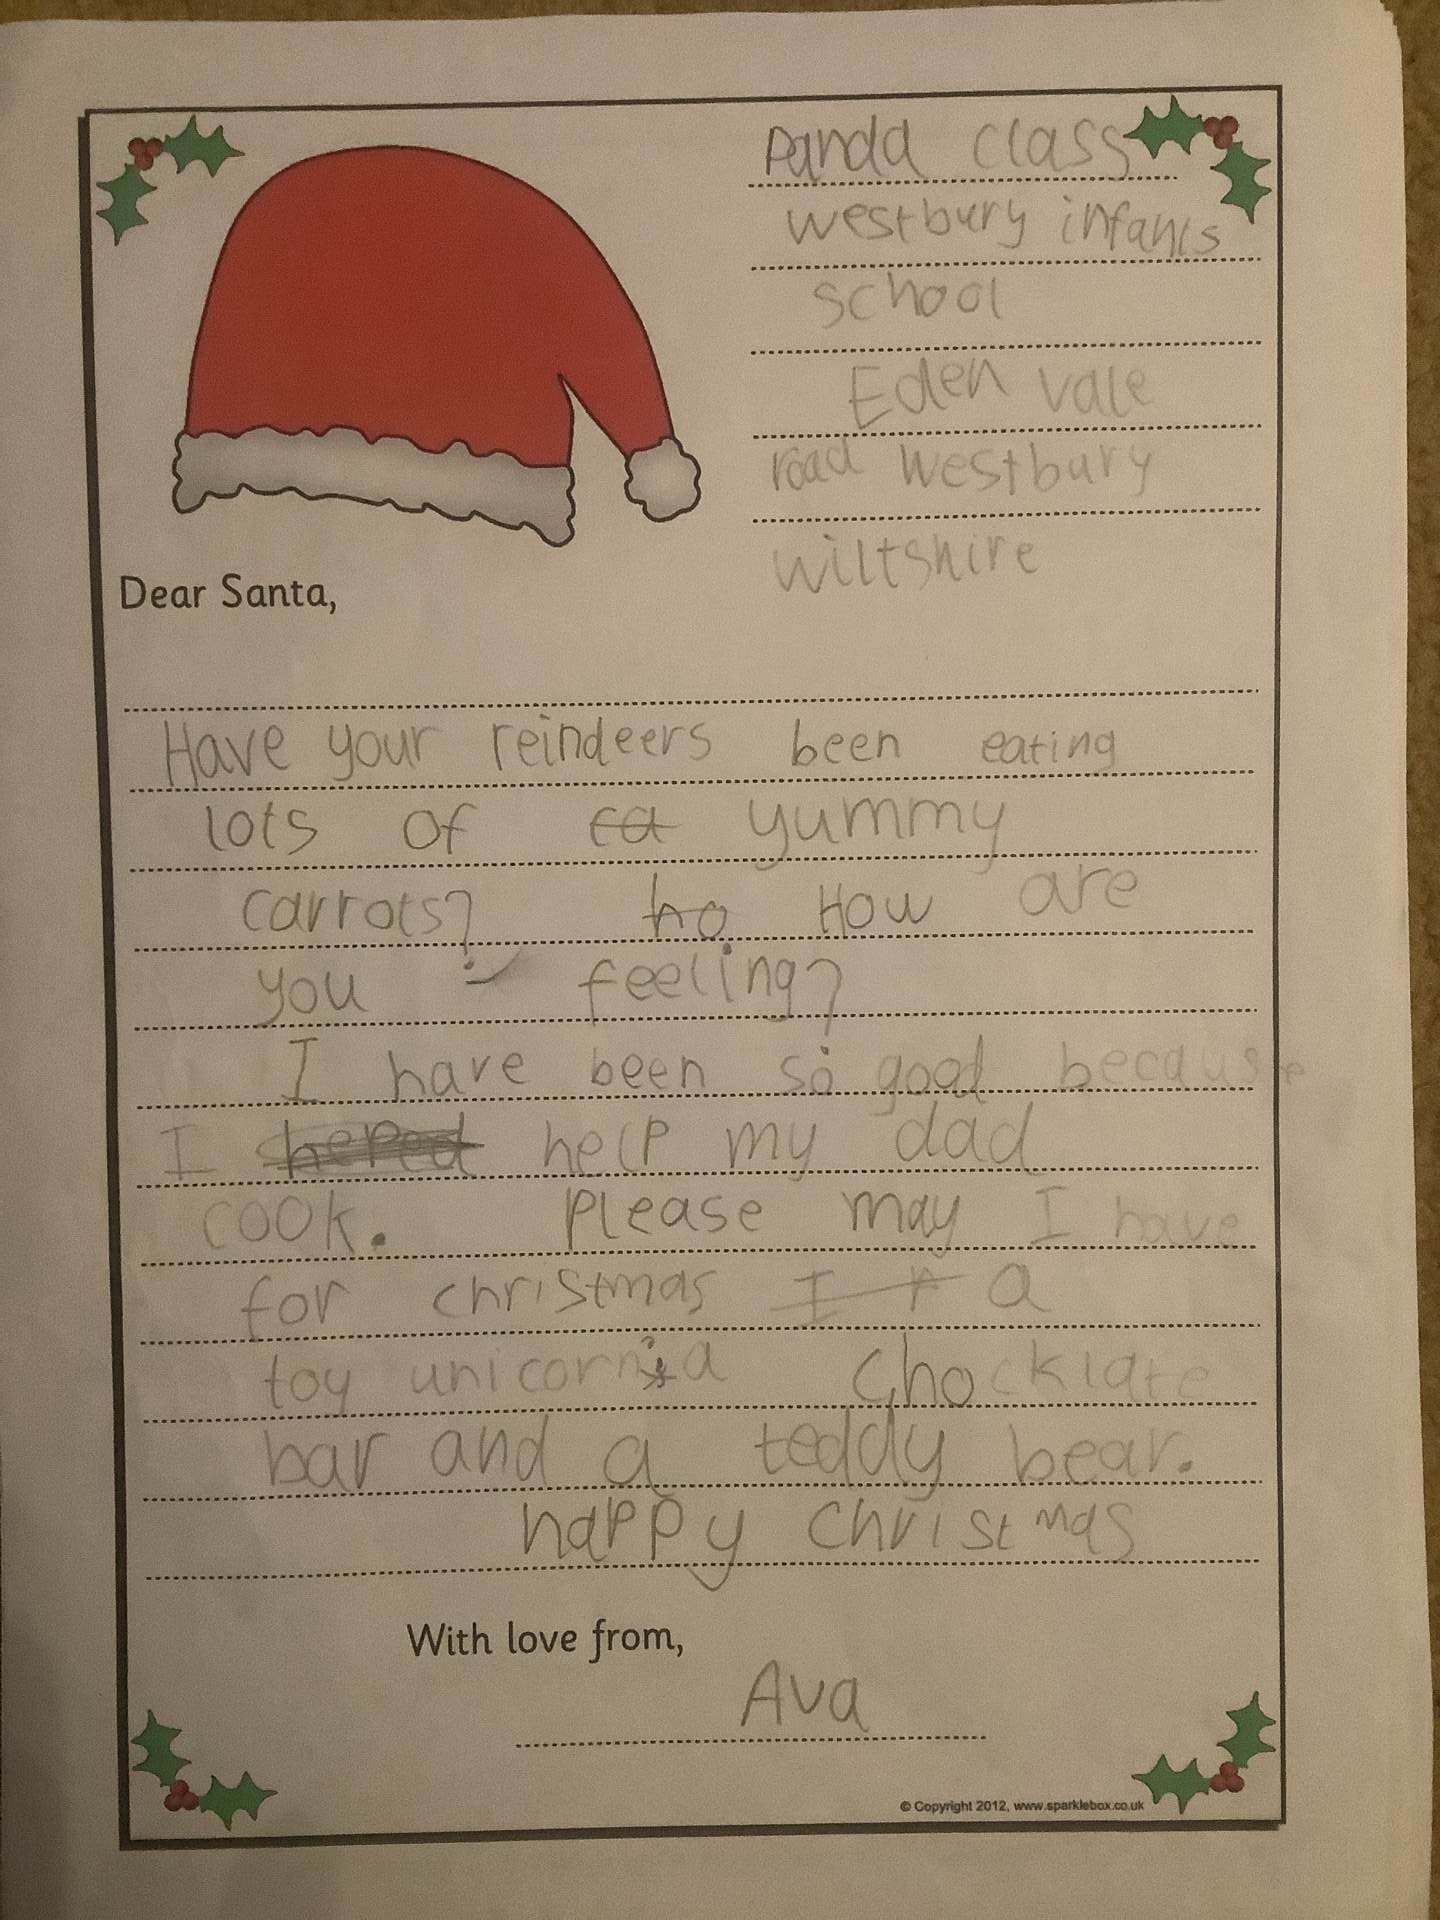 Panda class
westbury infants
school
Eden vale
road westbury
wiltshire
Dear Santa,
Have your reindeers been eating
lots of ca yummy
carrots? ho How are
you feeling?
I have been so good because
I help my dad
cook. Please may I have
for christmas I r a
toy unicorn, a chocklate
bar and a teddy bear.
happy christmas
With love from,
Ava
© Copyright 2012, www.sparklebox.co.uk